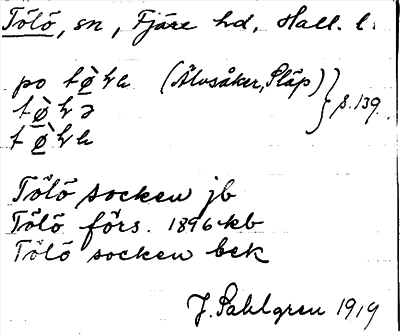 Tölö, sn, Fjäre hd, Hall. l.
po tø̀ɬa (Älvsåker, Släp) } s. 139.
tø̀ɬə
tø̀ɬa
Tölö socken jb
Tölö förs. 1896 kb
Tölö socken bek
J. Sahlgren 1919